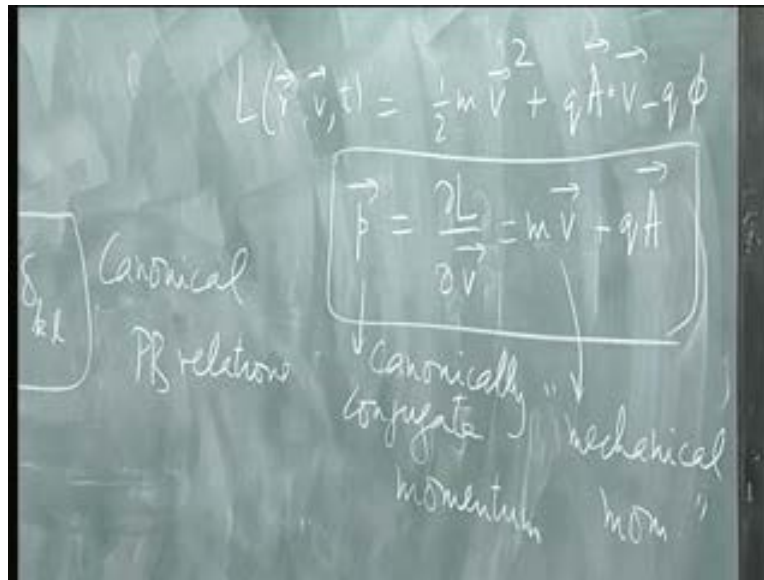 L(r⃗, v⃗, t) = ½ m v⃗² + q A⃗•v⃗ - qϕ
p⃗ = ∂L/∂v⃗ = m v⃗ + q A⃗
δ_kl
Canonical
PB relations
Canonically
conjugate
momentum
"mechanical
mom."